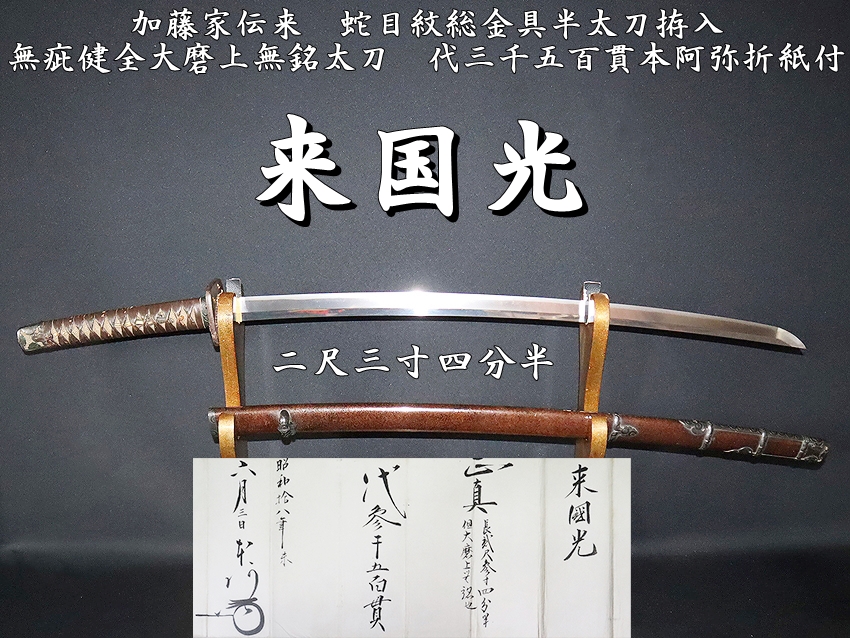 加藤家伝来　蛇目紋総金具半太刀拵入
無疵健全大磨上無銘太刀　代三千五百貫本阿弥折紙付
来国光
二尺三寸四分半
来國光
正真
長貳尺参寸四分半
但大磨上無銘也
代参千五百貫
昭和拾八年未
六月三日